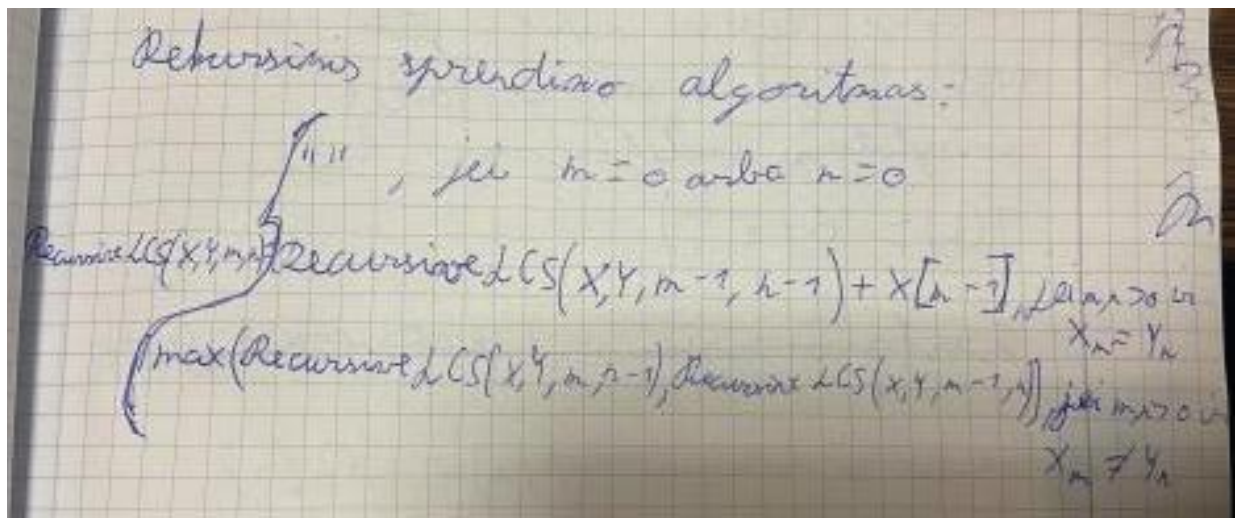 Rekursinis sprendimo algoritmas:
"" , jei m = 0 arba n = 0
RecursiveLCS(X,Y,m,n) RecursiveLCS(X,Y, m-1, n-1) + X[n-1], jei m,n>0 ir
Xn = Yn
max(RecursiveLCS(X,Y,m,n-1), RecursiveLCS(X,Y,m-1,n)), jei m,n>0 ir
Xm ≠ Yn